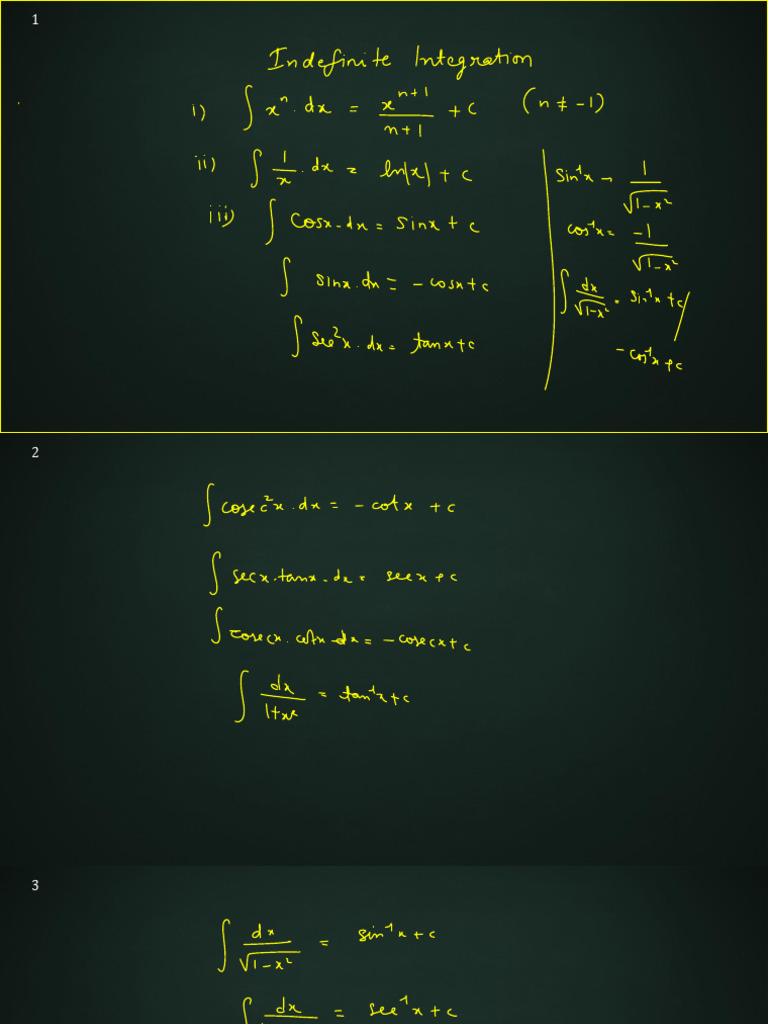 1
Indefinite Integration
i) ∫ xⁿ. dx = xⁿ⁺¹/n+1 + c (n ≠ -1)
ii) ∫ 1/x . dx = ln|x| + c
iii) ∫ cosx. dx = sinx + c
∫ sinx. dx = - cosx + c
∫ sec²x. dx = tanx + c
sin⁻¹x → 1/√1-x²
cos⁻¹x = -1/√1-x²
∫ dx/√1-x² = sin⁻¹x + c /
- cos⁻¹x + c
2
∫ cosec²x. dx = - cotx + c
∫ secx. tanx. dx = secx + c
∫ cosecx. cotx. dx = - cosecx + c
∫ dx/1+x² = tan⁻¹x + c
3
∫ dx/√1-x² = sin⁻¹x + c
∫ dx = sec⁻¹x + c